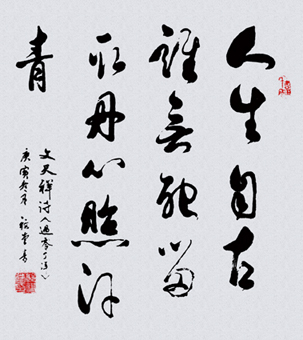 人生自古
誰無死留
取丹心照汗
青
文天祥诗《過零丁洋》
庚寅冬月